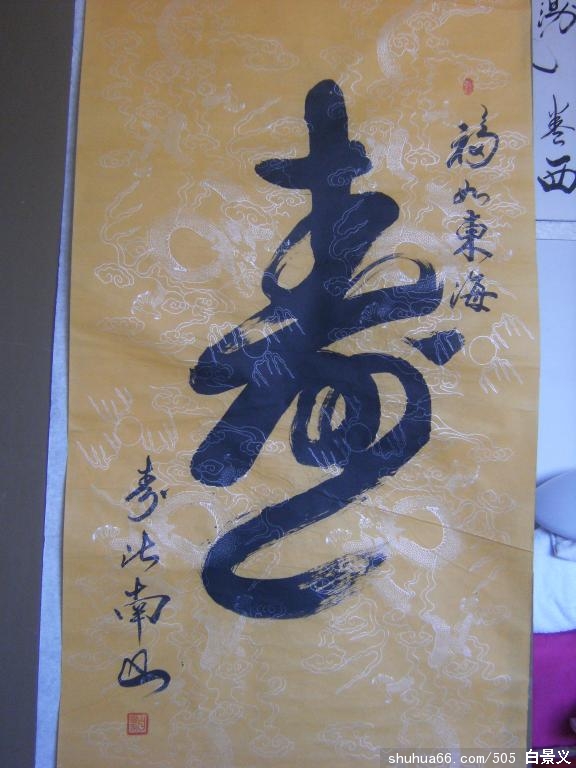 福如東海
寿
寿比南山
西
shuhua66.com/505 白景义